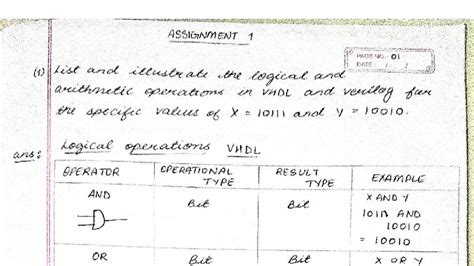 ASSIGNMENT 1
PAGE NO. 01
DATE / /
(1) List and illustrate the logical and
arithmetic operations in VHDL and verilog for
the specific values of X = 10111 and Y = 10010.
ans: Logical operations VHDL
OPERATOR OPERATIONAL TYPE RESULT TYPE EXAMPLE
AND Bit Bit X AND Y
10111 AND
10010
= 10010
OR Bit Bit X OR Y